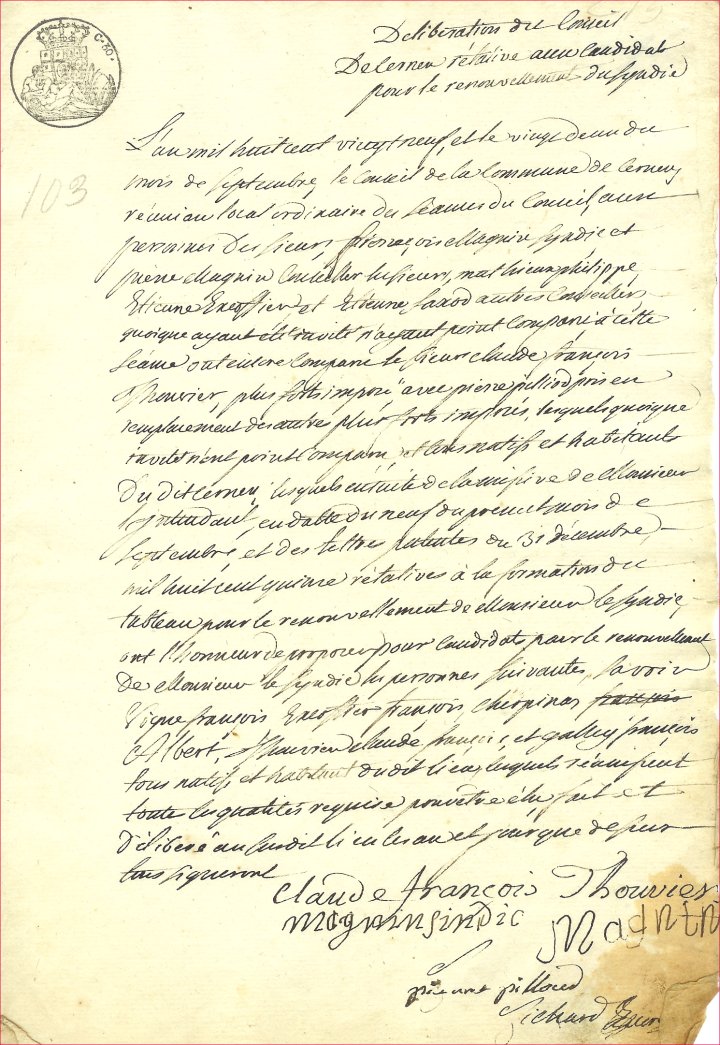 C. 80.
Deliberation du Conseil
De Cerneu rélative aux Candidats
pour le renouvellement du Syndic
103
L'an mil huit cent vingt neuf, et le vingt deux du
mois de Septembre, le Conseil de la Commune de Cerneu,
réuni au local ordinaire des séances du Conseil, aux
personnes des sieurs françois Magnin Syndic et
pierre Magnin Conseiller les sieurs, mathieu philippe
Etienne et Etienne Saxod autres Conseillers
quoique ayant été invité n'ayant point Comparu à cette
séance ont encore Comparu le sieur claude françois
Thouvier, plus forts imposé avec pierre pilliod pris en
remplacement des autres plus forts imposés, lesquels quoique
invité n'ent point Comparu, et tous natifs et habitants
Du dit Cerneu, lesquels ensuite de la missive de Monsieur
l'Intendant, en datte du neuf du présent mois de
Septembre, et des lettres patentes du 31 décembre,
mil huit cent quinze rélatives à la formation du
tableau pour le renouvellement de Monsieur le Syndic,
ont l'honneur de proposer pour Candidats pour le renouvellement
De Monsieur le Syndic les personnes suivantes, savoir
françois françois Cherpinas françois
Albert, Thouvier claude françois, et françois
tous natifs et habitant du dit lieu, lesquels réunissent
toute les qualités requise pour être élu fait et
Délibéré au susdit lieu les an et jour que dessus
tous signeront
Claude françois Thouvier
magnin sindic Magnin
pilloud
Richard